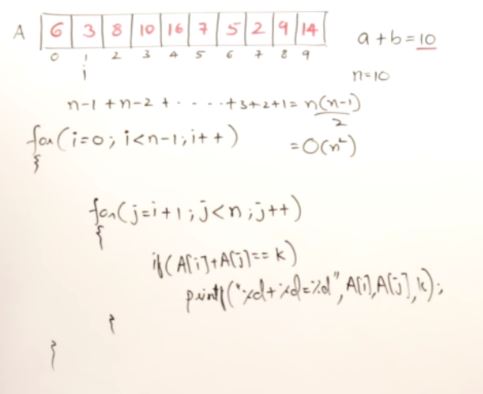 A 6 3 8 10 16 7 5 2 9 14
0 1 2 3 4 5 6 7 8 9
i
a+b=10
n=10
n-1 + n-2 + ‧ ‧ ‧ ‧ ‧ +3+2+1 = n(n-1)/2
for(i=0; i<n-1; i++)
= O(n²)
{
for(j=i+1; j<n; j++)
{
if(A[i]+A[j]== k)
printf("%d+%d=%d", A[i],A[j],k);
}
}